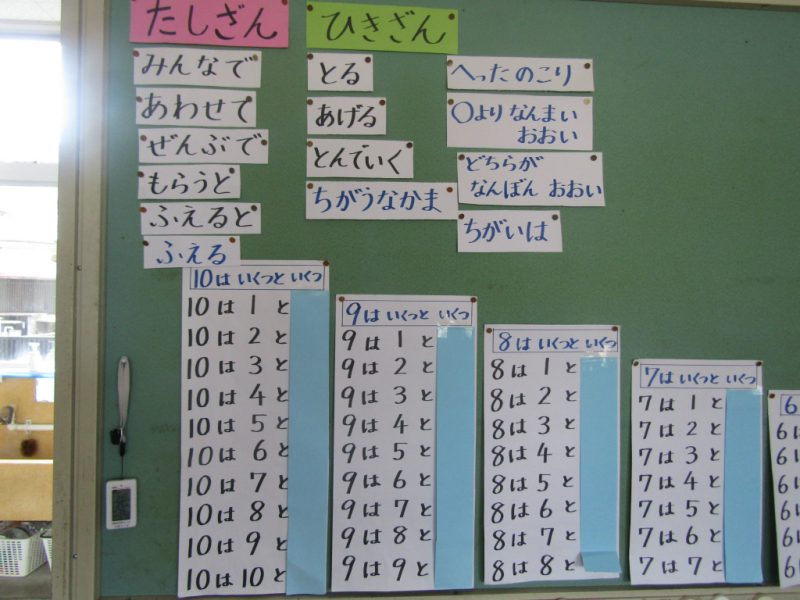 たしざん
みんなで
あわせて
ぜんぶで
もらうと
ふえると
ふえる
ひきざん
とる
あげる
とんでいく
ちがうなかま
へったのこり
〇より なんまい
おおい
どちらが
なんぼん おおい
ちがいは
10は いくつと いくつ
10は 1と
10は 2と
10は 3と
10は 4と
10は 5と
10は 6と
10は 7と
10は 8と
10は 9と
10は 10と
9は いくつと いくつ
9は 1と
9は 2と
9は 3と
9は 4と
9は 5と
9は 6と
9は 7と
9は 8と
9は 9と
8は いくつと いくつ
8は 1と
8は 2と
8は 3と
8は 4と
8は 5と
8は 6と
8は 7と
8は 8と
7は いくつと いくつ
7は 1と
7は 2と
7は 3と
7は 4と
7は 5と
7は 6と
7は 7と
6
6は
6は
6は
6は
6は
6は